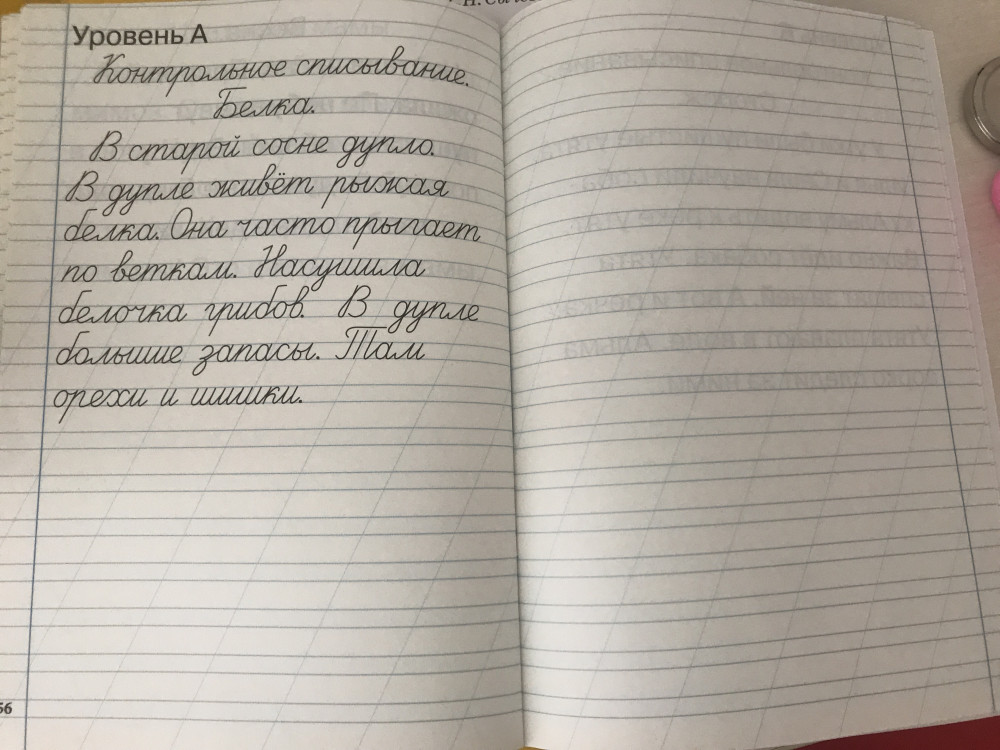 Уровень А
Контрольное списывание.
Белка.
В старой сосне дупло.
В дупле живёт рыжая
белка. Она часто прыгает
по веткам. Насушила
белочка грибов. В дупле
большие запасы. Там
орехи и шишки.
56